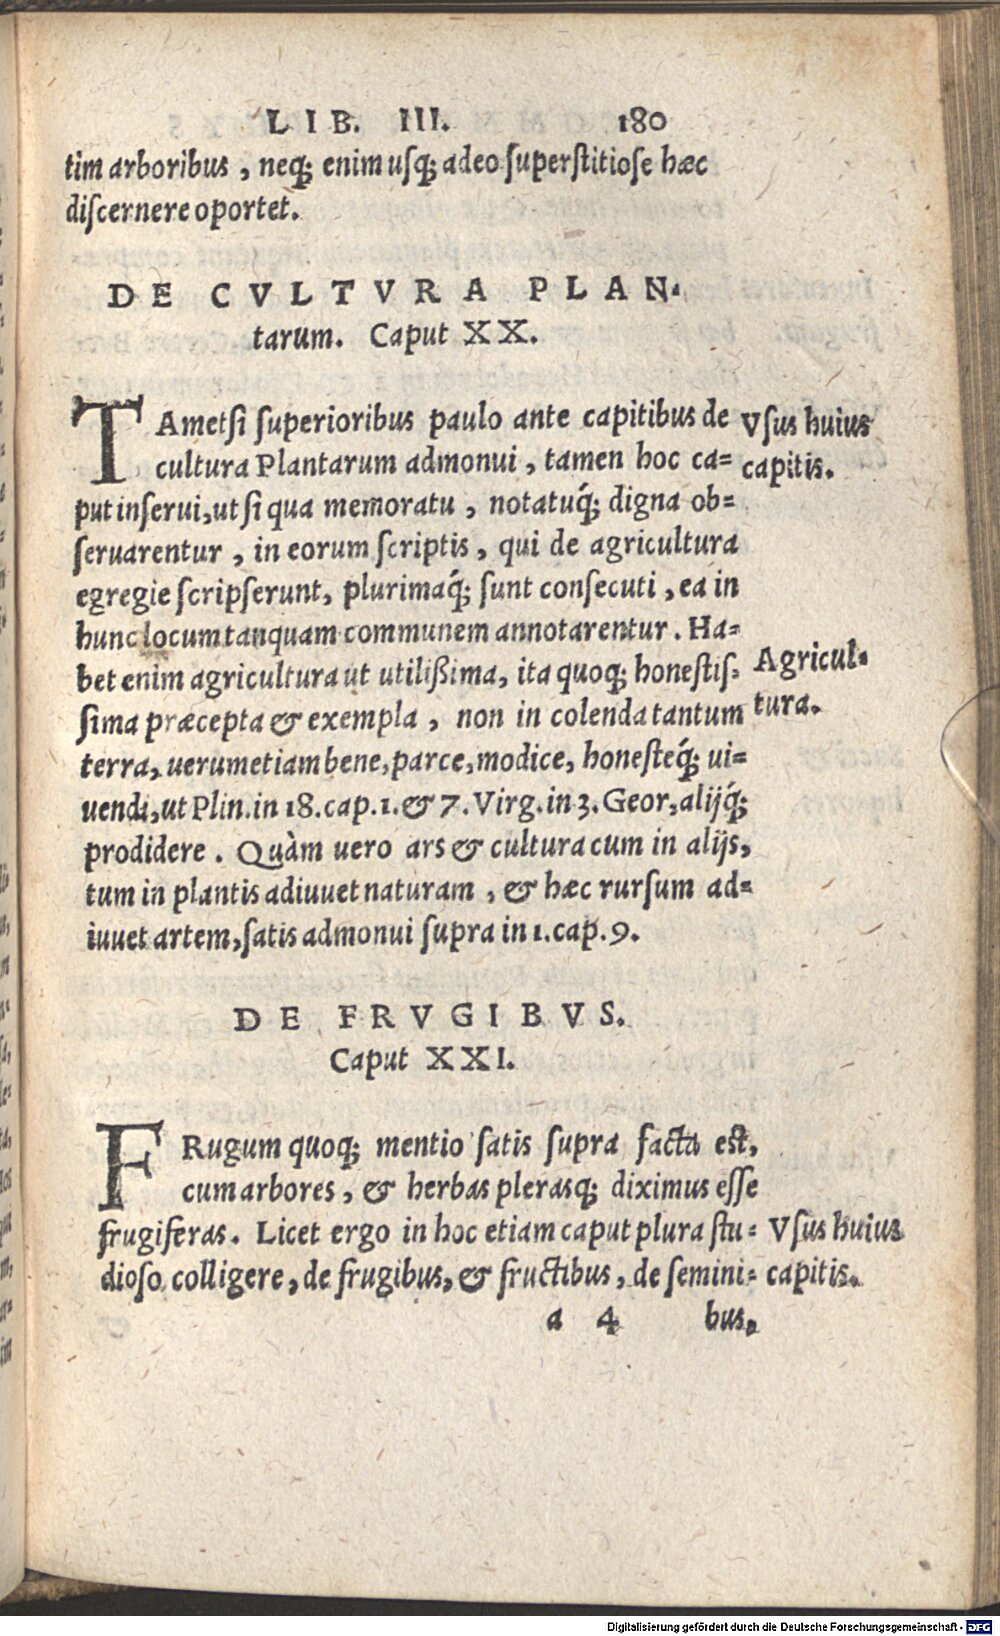 LIB. III. 180
tim arboribus, neq; enim usq; adeo superstitiose hæc
discernere oportet.
DE CVLTVRA PLAN-
tarum. Caput XX.
TAmetsi superioribus paulo ante capitibus de
cultura Plantarum admonui, tamen hoc ca=
put inserui, ut si qua memoratu, notatuq́; digna ob=
seruarentur, in eorum scriptis, qui de agricultura
egregie scripserunt, plurimaq́; sunt consecuti, ea in
hunc locum tanquam communem annotarentur. Ha=
bet enim agricultura ut utilißima, ita quoq; honestis=
sima præcepta & exempla, non in colenda tantum
terra, uerumetiam bene, parce, modice, honesteq́; ui=
uendi, ut Plin. in 18. cap. 1. & 7. Virg. in 3. Geor, alijq́;
prodidere. Quàm uero ars & cultura cum in alijs,
tum in plantis adiuuet naturam, & hæc rursum ad=
iuuet artem, satis admonui supra in 1. cap. 9.
Vsus huius
capitis.
Agricul-
tura.
DE FRVGIBVS.
Caput XXI.
FRugum quoq; mentio satis supra facta est,
cum arbores, & herbas plerasq; diximus esse
frugiferas. Licet ergo in hoc etiam caput plura stu=
dioso colligere, de frugibus, & fructibus, de semini=
Vsus huius
capitis.
a 4 bus.
Digitalisierung gefördert durch die Deutsche Forschungsgemeinschaft - DFG